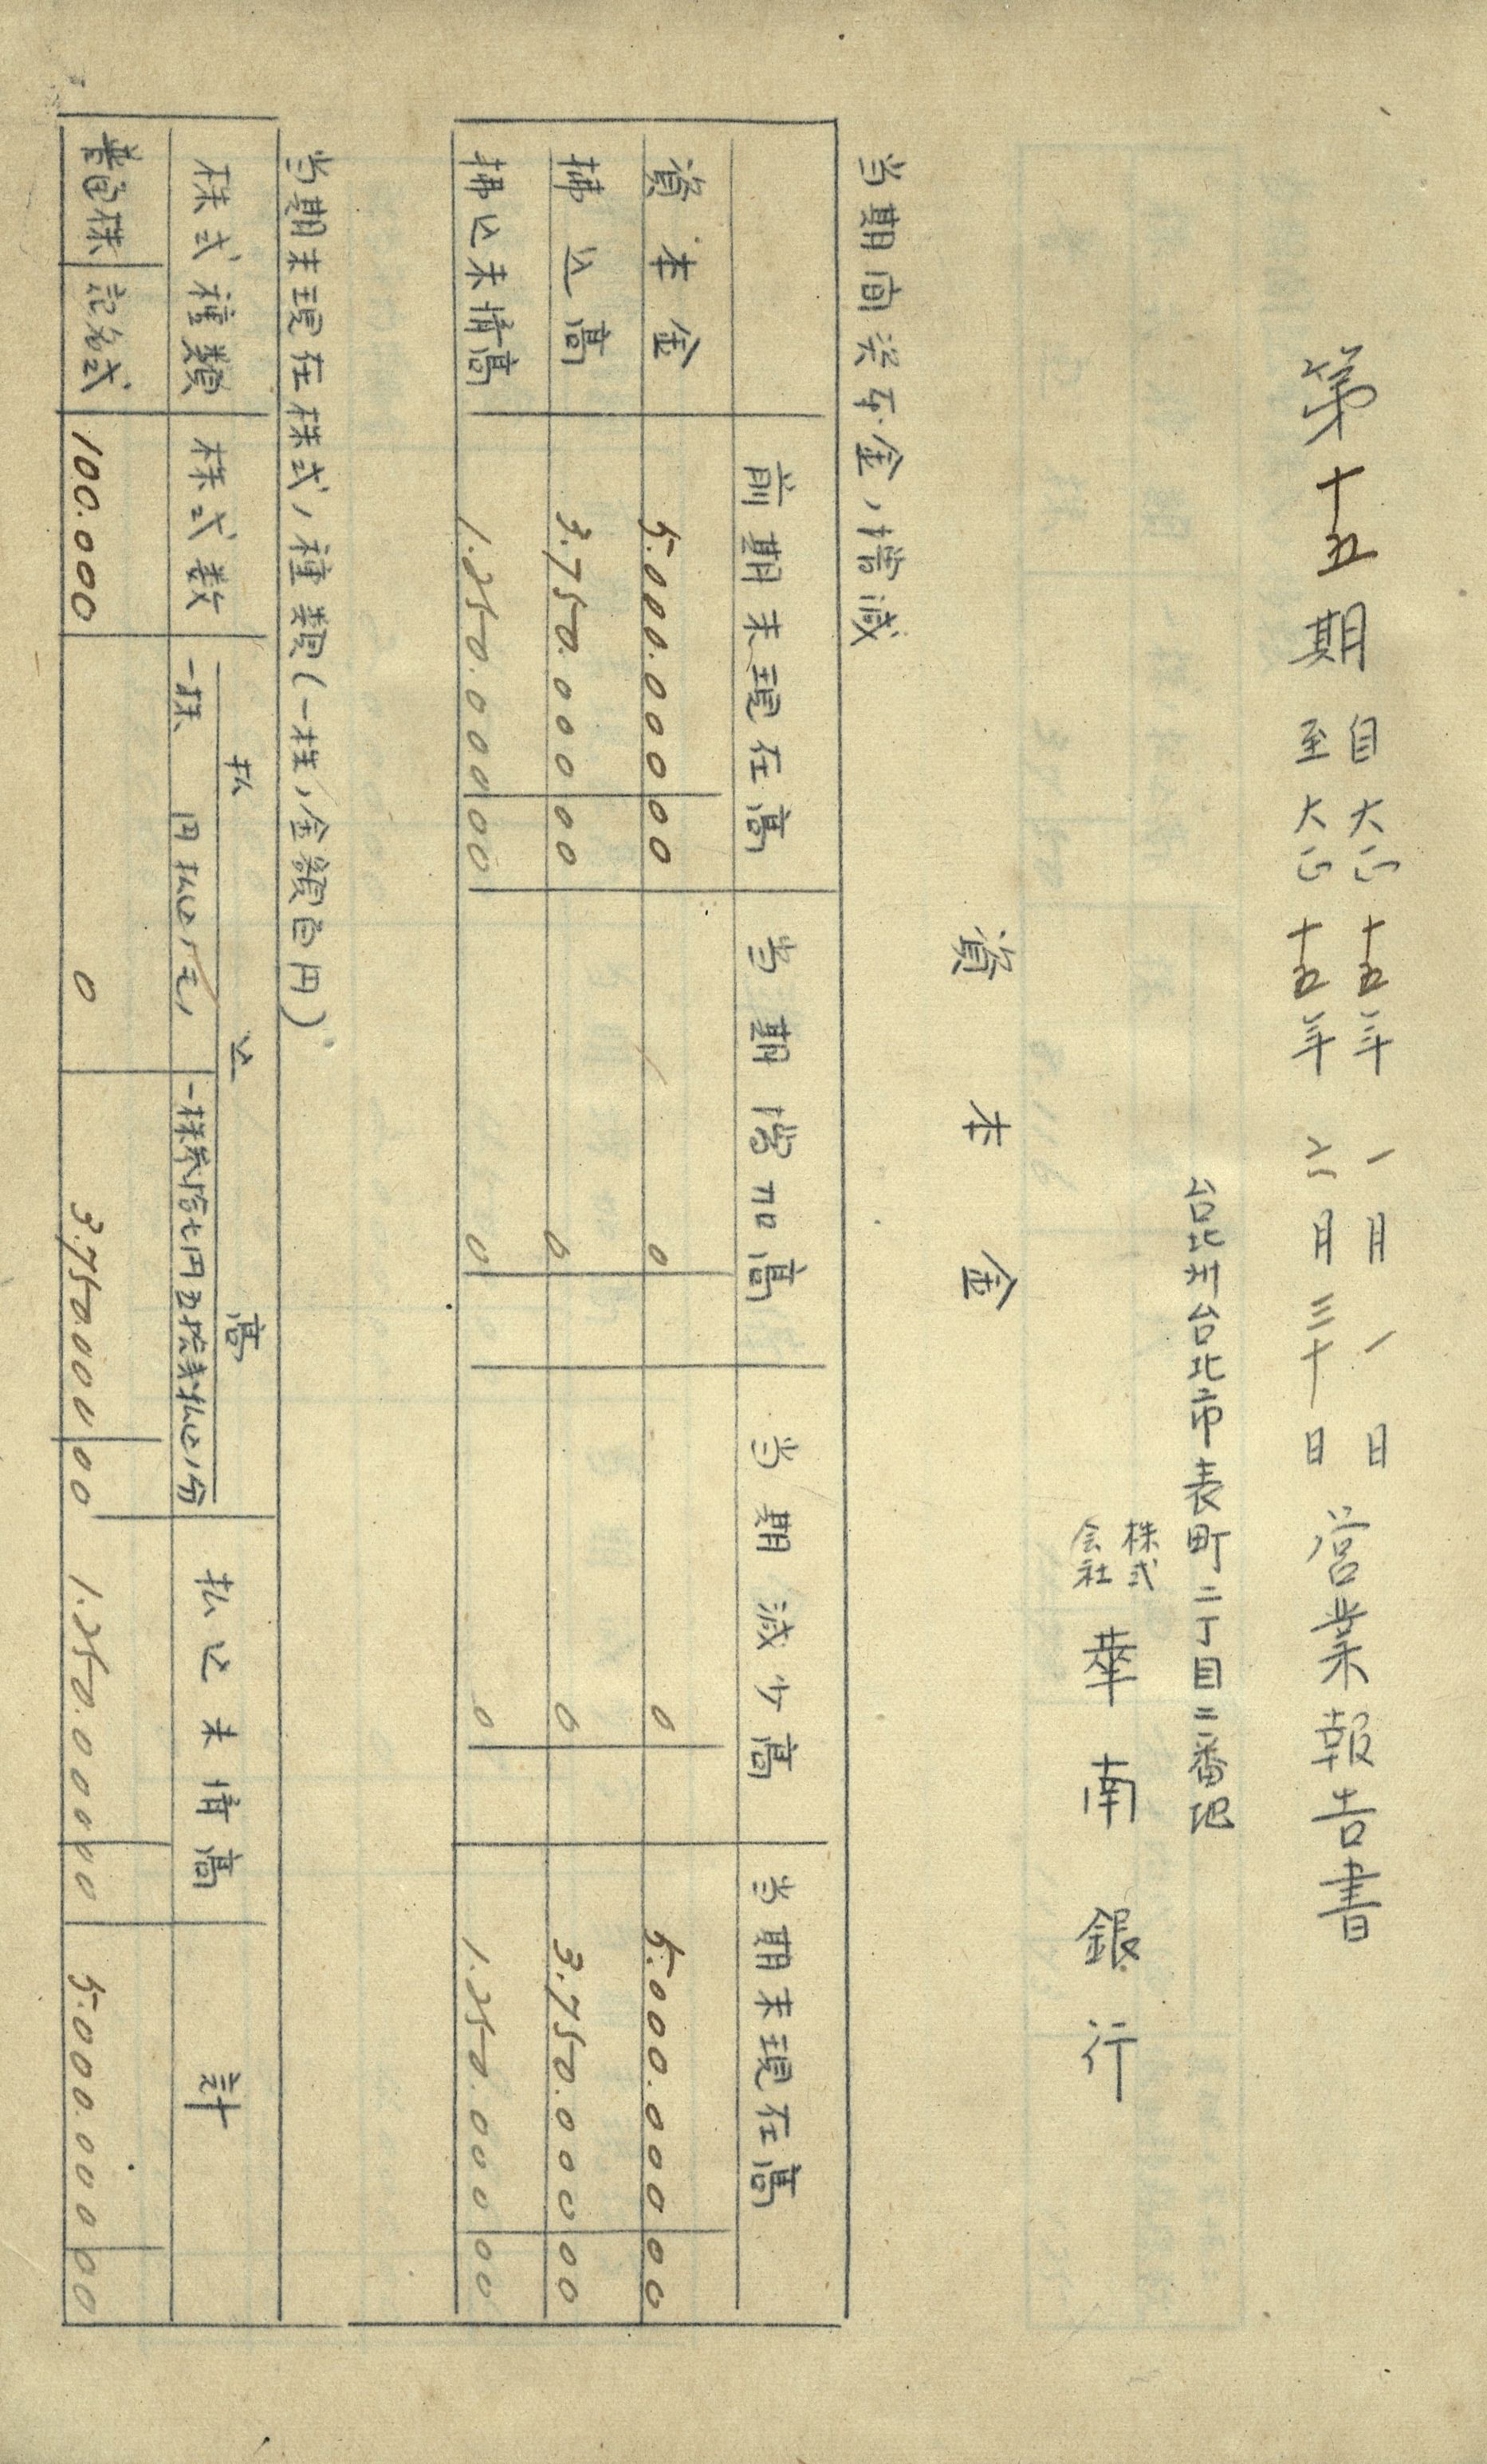 第十五期 自大正十五年一月一日 至大正十五年六月三十日 営業報告書
台北州台北市表町二丁目二番地
株式会社 華南銀行
資本金
当期间资本金ノ増減
前期末現在高 当期増加高 当期減少高 当期末現在高
資本金 5.000.000 00 0 0 5.000.000 00
拂込高 3.750.000 00 0 0 3.750.000 00
拂込未済高 1.250.000 00 0 0 1.250.000 00
当期末現在株式ノ種類(一株ノ金額百円)
株式種類 株式数 払込高 払込未済高 計
一株 円払込ノモノ 一株参拾七円五拾銭払込ノ分
普通株 記名式 100.000 0 3.750.000 00 1.250.000 00 5.000.000 00